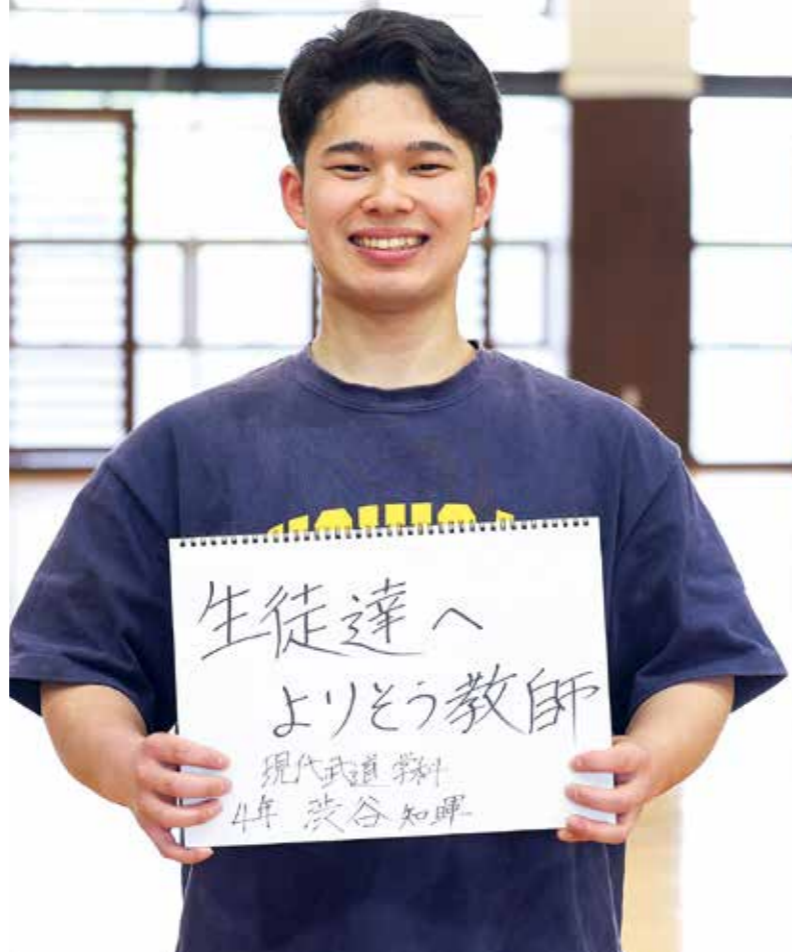 生徒達へ
よりそう教師
現代武道学科
4年 渋谷知暉